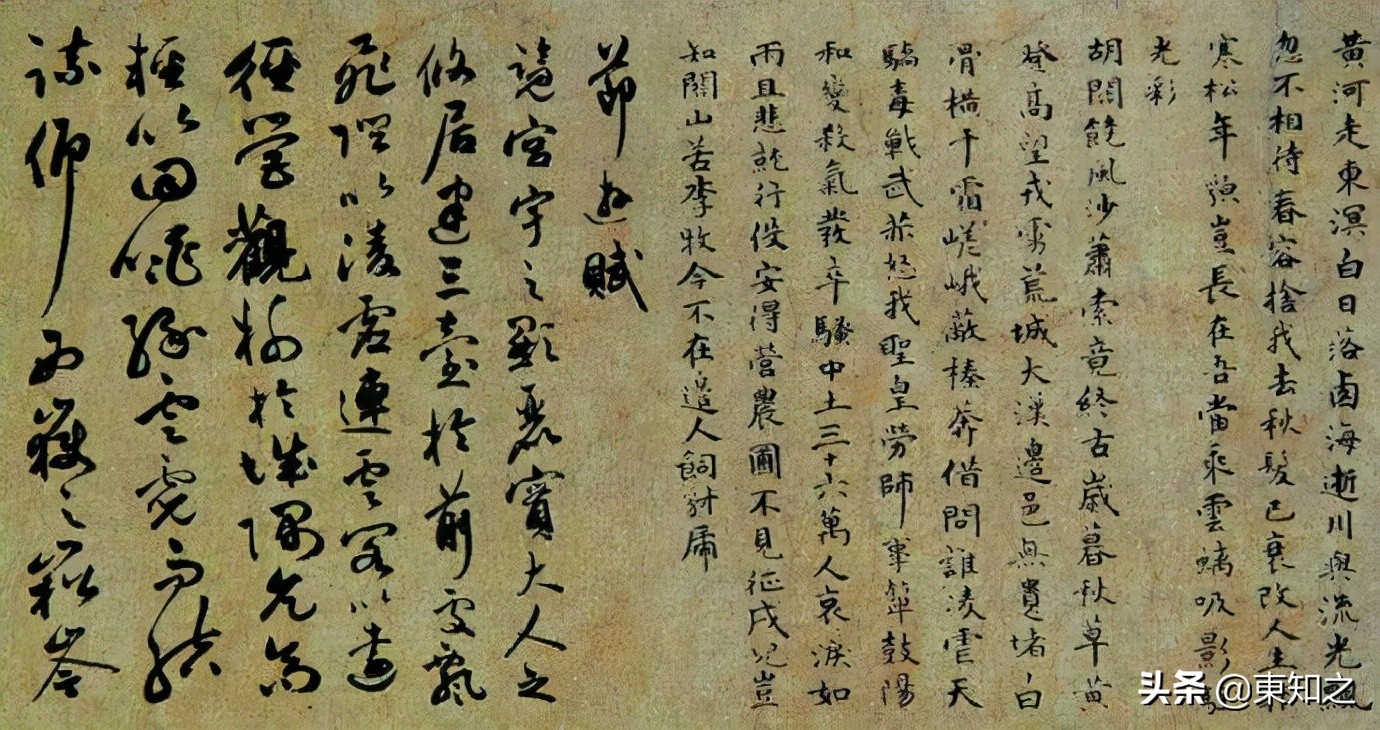 黃河走東溟白日落鹵海逝川與流光飄
忽不相待春容捨我去秋髮已衰改人生非
寒松年貌豈長在吾當乘雲螭吸影駐
光彩
胡關饒風沙蕭索竟終古歲暮秋草黃
登高望戎虜荒城大漠邊邑無遺堵白
骨橫千霜嵯峨蔽榛莽借問誰凌虐天
驕毒戰武赫怒我聖皇勞師事鼙鼓陽
和變殺氣發卒騷中土三十六萬人哀淚如
雨且悲就行役安得營農圃不見征戍兒豈
知關山苦李牧今不在邊人飼豺虎
節遊賦
覽宮宇之顯麗實大人之
攸居建三臺於前處飄
飛陛以凌虛連雲閣以遠
徑營觀榭於城隅亢高
軒以迴眺緣雲霓而結
疏仰西嶽之崧岑
头条 @東知之